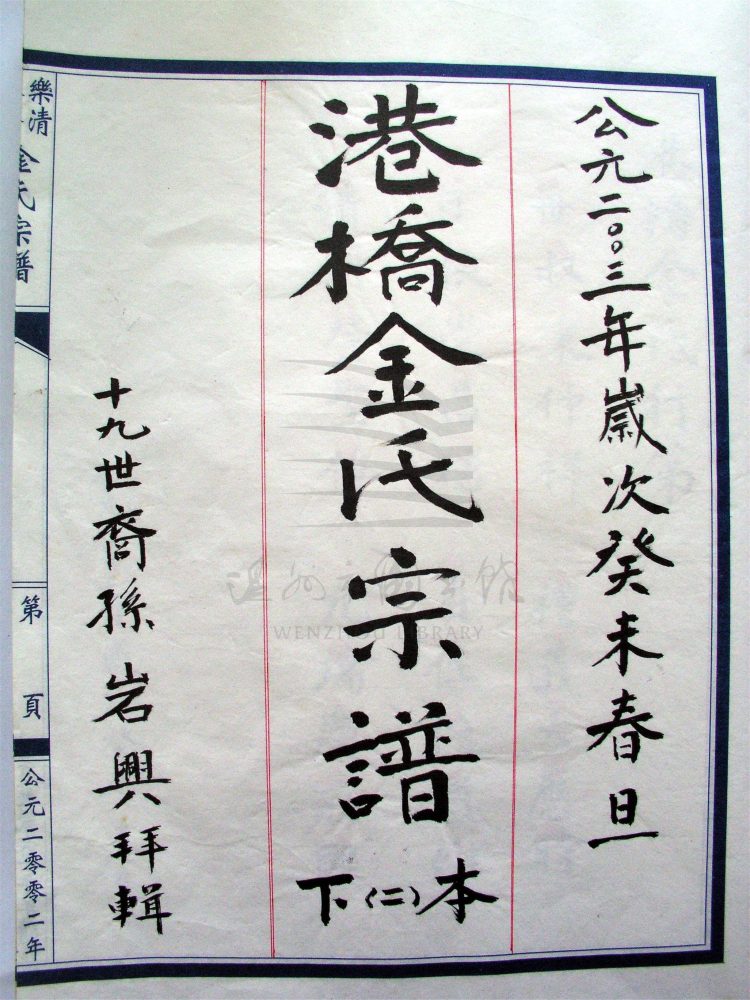 公元二〇〇三年歲次癸未春旦
港橋金氏宗譜
下(二)本
十九世裔孫岩興拜輯
樂清
金氏宗譜
第 頁
公元二零零二年
温州市圖書館
WENZHOU LIBRARY